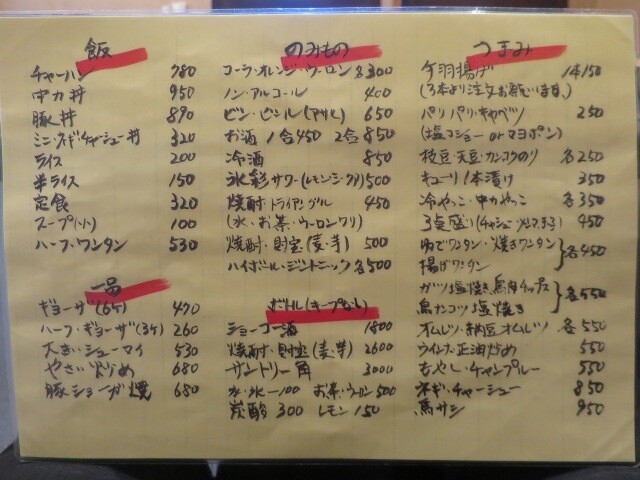 飯
チャーハン 780
中力丼 950
豚丼 890
ミニ・ネギ・チャーシュー丼 320
ライス 200
半ライス 150
定食 320
スープ(小) 100
ハーフ・ワンタン 530
一品
ギョーザ(6ヶ) 470
ハーフ・ギョーザ(3ヶ) 260
大きいシューマイ 530
やさい炒め 680
豚ショーガ焼 680
のみもの
コーラ・オレンジ・ウーロン 各300
ノン・アルコール 400
ビン・ビンル(アサヒ) 650
お酒 1合450 2合850
冷酒 850
氷彩サワー(レモン) 500
焼酎・トライアングル 450
(水・お茶・ウーロンワリ)
焼酎・財宝(麦・芋) 500
ハイボール・ジントニック 各500
ボトル(キープなし)
ショーコー酒 1800
焼酎・財宝(麦・芋) 2600
サントリー角 3000
水・氷—100 お茶・ウーロン500
炭酸 300 レモン 150
つまみ
手羽揚げ 1本150
(3本より注文お願いします。)
パリパリ・キャベツ 250
(塩コショー or マヨポン)
枝豆・天豆・カンコクのり 各250
キューリ1本漬け 350
冷やっこ・中カやっこ 各350
3点盛り(チャシュー・メンマ・玉子) 450
ゆでワンタン・焼きワンタン
揚げワンタン 各450
ガツ塩焼き・鳥肉チップス
鳥ナンコツ塩焼き 各550
オムレツ・納豆オムレツ 各550
ウインナー正油炒め 550
もやし・チャンプルー 550
ネギ・チャーシュー 850
馬サシ 950